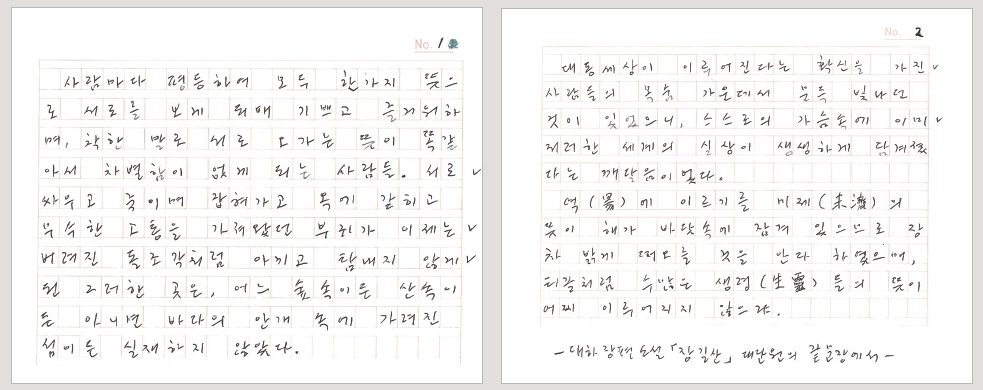 No. 1
사람마다 평등하여 모두 한가지 뜻으
로 서로를 보게 되매 기쁘고 즐거워하
며, 착한 말로 서로 오가는 뜻이 똑같
아서 차별함이 없게 되는 사람들. 서로
싸우고 죽이며 잡혀가고 옥에 갇히고
무수한 고통을 가져왔던 부귀가 이제는
버려진 돌조각처럼 아끼고 탐내지 않게
된 그러한 곳은, 어느 숲속이든 산속이
든 아니면 바다의 안개 속에 가려진
섬이든 실재하지 않았다.
No. 2
대동세상이 이루어진다는 확신을 가진
사람들의 목숨 가운데서 문득 빛나던
것이 있었으니, 스스로의 가슴속에 이미
저러한 세계의 실상이 생생하게 담겨졌
다는 깨달음이었다.
역(易)에 이르기를 미제(未濟)의
뜻이 해가 바닷속에 잠겨 있으므로 장
차 밝게 떠오를 것을 안다 하였으매,
티끌처럼 수많은 생령(生靈)들의 뜻이
어찌 이루어지지 않으랴.
- 대하장편소설 「장길산」 대단원의 끝문장에서 -